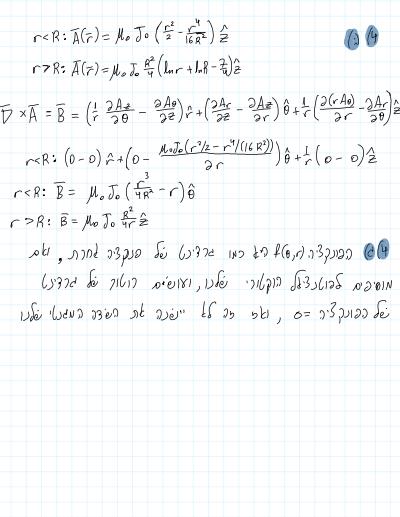 4 ב) r<R: A̅(r̅) = μ₀ J₀ (r²/2 - r⁴/16R²) ẑ
r>R: A̅(r̅) = μ₀ J₀ R²/4 (ln r + ln R - 3/4) ẑ
∇̅ × A̅ = B̅ = (1/r ∂A_z/∂θ - ∂A_θ/∂z) r̂ + (∂A_r/∂z - ∂A_z/∂r) θ̂ + 1/r (∂(rA_θ)/∂r - ∂A_r/∂θ) ẑ
r<R: (0-0) r̂ + (0 - μ₀J₀(r²/2 - r⁴/(16R²))/∂r) θ̂ + 1/r (0-0) ẑ
r<R: B̅ = μ₀ J₀ (r³/4R² - r) θ̂
r>R: B̅ = μ₀ J₀ R²/4r ẑ
4 הפונקציה f(θ,r) היא כמו גרדינט של פונקציה אחרת, ואם
מוסיפים לפוטנציאל הוקטורי שלנו, ועושים רוטור של גרדינט
של הפונקציה =0, ואז זה לא ישנה את השדה המגנטי שלנו